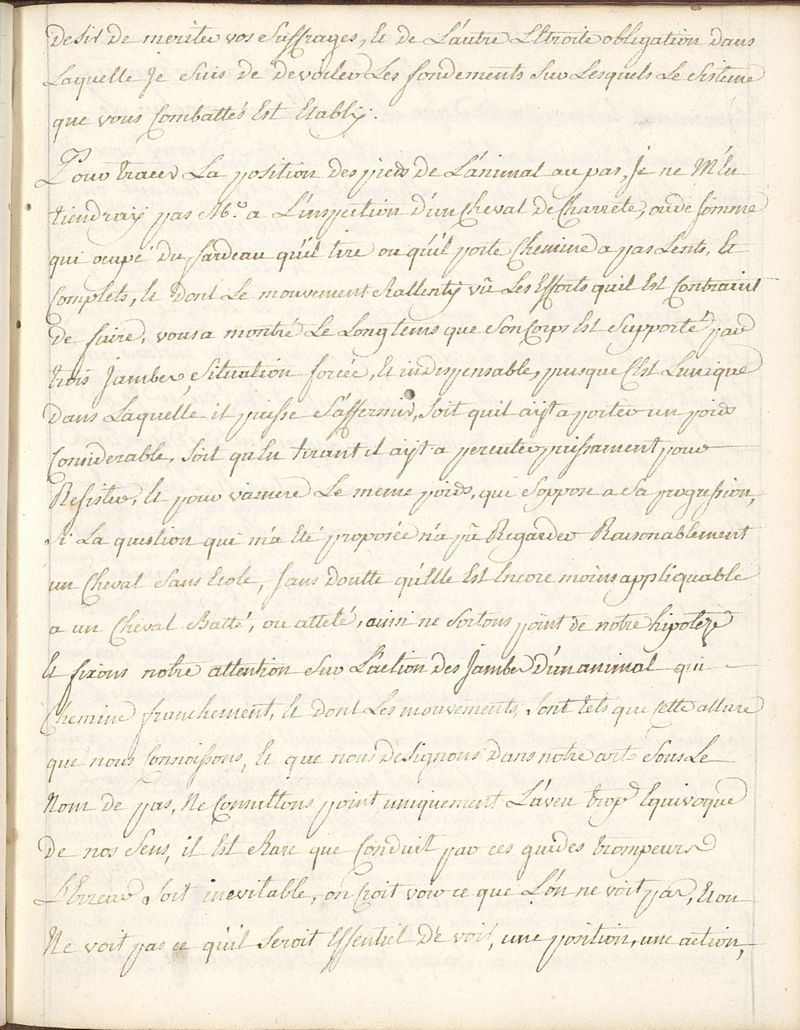 desir de meriter vos Suffrages, & de L'autre L'Etroite obligation dans
Laquelle Je suis de devoiler Les fondements Sur Lesquels Le Sisteme
que vous Combattés Est Etably.
Pour tracer La position des pieds de L'animal au pas, Je ne M'En
tiendray pas Mr. a L'inspection d'un Cheval de Charrete, ou de Somme
qui ocupé du fardeau qu'il tire ou qu'il porte Chemine a pas Lents, &
Complets, & dont Le mouvement Rallenty vû Les Efforts qu'il Est Contraint
de faire, vous a montré Le Longtems que Son Corps Est Supporté par
trois Jambes, Situation forcée, & indispensable, puisque C'est L'unique
dans Laquelle il puisse S'affermir, Soit qu'il ayt a porter un poids
Considerable, Soit qu'En tirant il ayt a percuter puissament pour
Resister, & pour vaincre Le meme poids, qui S'oppose a Sa progression,
Si La question qui m'a Eté proposée n'a pû Regarder Raisonablement
un Cheval Sans Ecole, Sans doutte qu'Elle Est Encore moins appliquable
a un Cheval Batté, ou attelé, ainsi ne Sortons point de notre hipoteze
& fixons notre attention Sur L'action des Jambes d'un animal qui
Chemine franchement, & dont Les mouvements, Sont tels que Cette allure
que nous Connoissons, & que nous Designons dans notre art Sous Le
Nom de pas, Ne Consultons point uniquement L'aveu trop Equivoque
de nos Sens, il Est Rare que Conduit par ces guides trompeurs
L'Erreur Soit inevitable, on Croit voir ce que L'on ne voit pas, Et on
Ne voit pas ce qu'il Seroit Essentiel de voir, une position, une action,